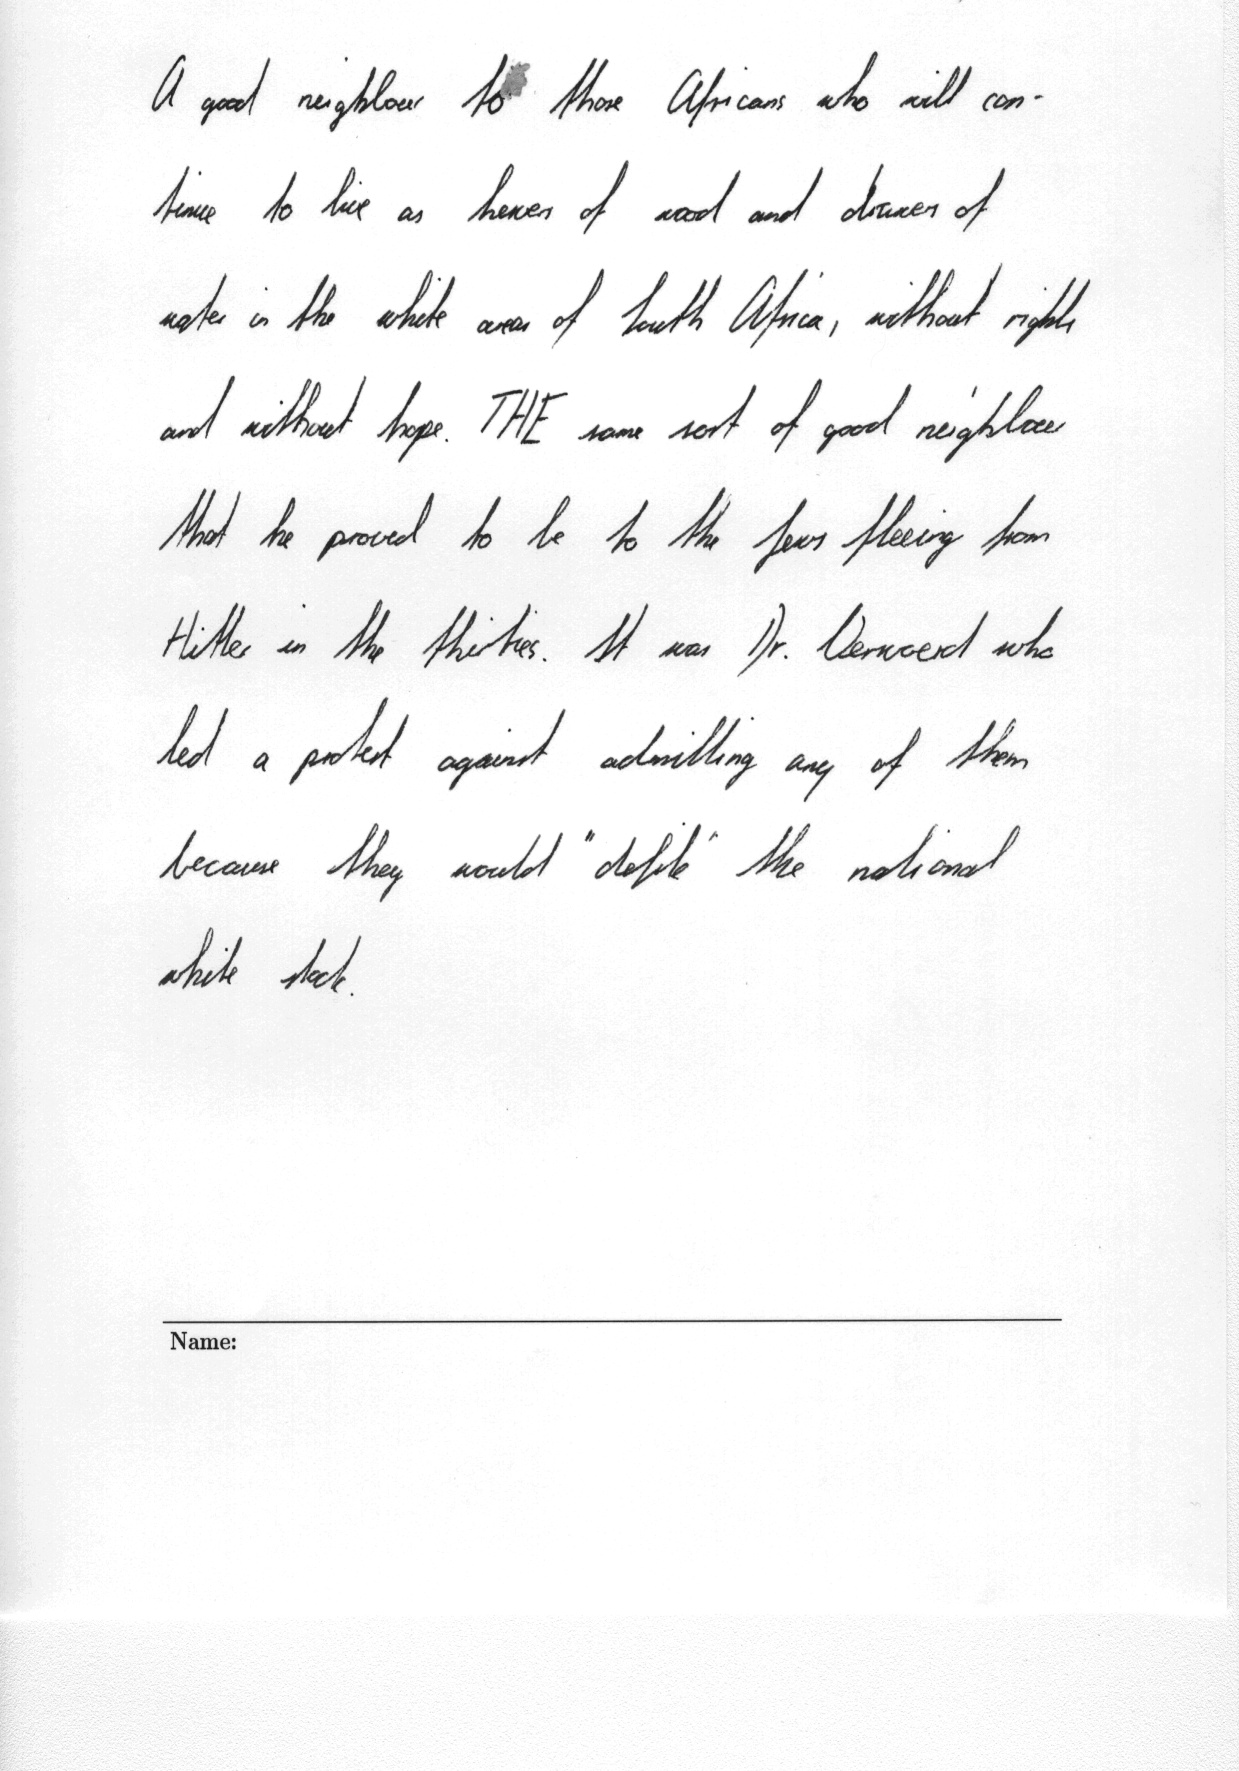 A good neighbour to those Africans who will con-
tinue to live as hewers of wood and drawers of
water in the white areas of South Africa, without rights
and without hope. THE same sort of good neighbour
that he proved to be to the Jews fleeing from
Hitler in the thirties. It was Dr. Verwoerd who
led a protest against admitting any of them
because they would "defile" the national
white stock.
Name: